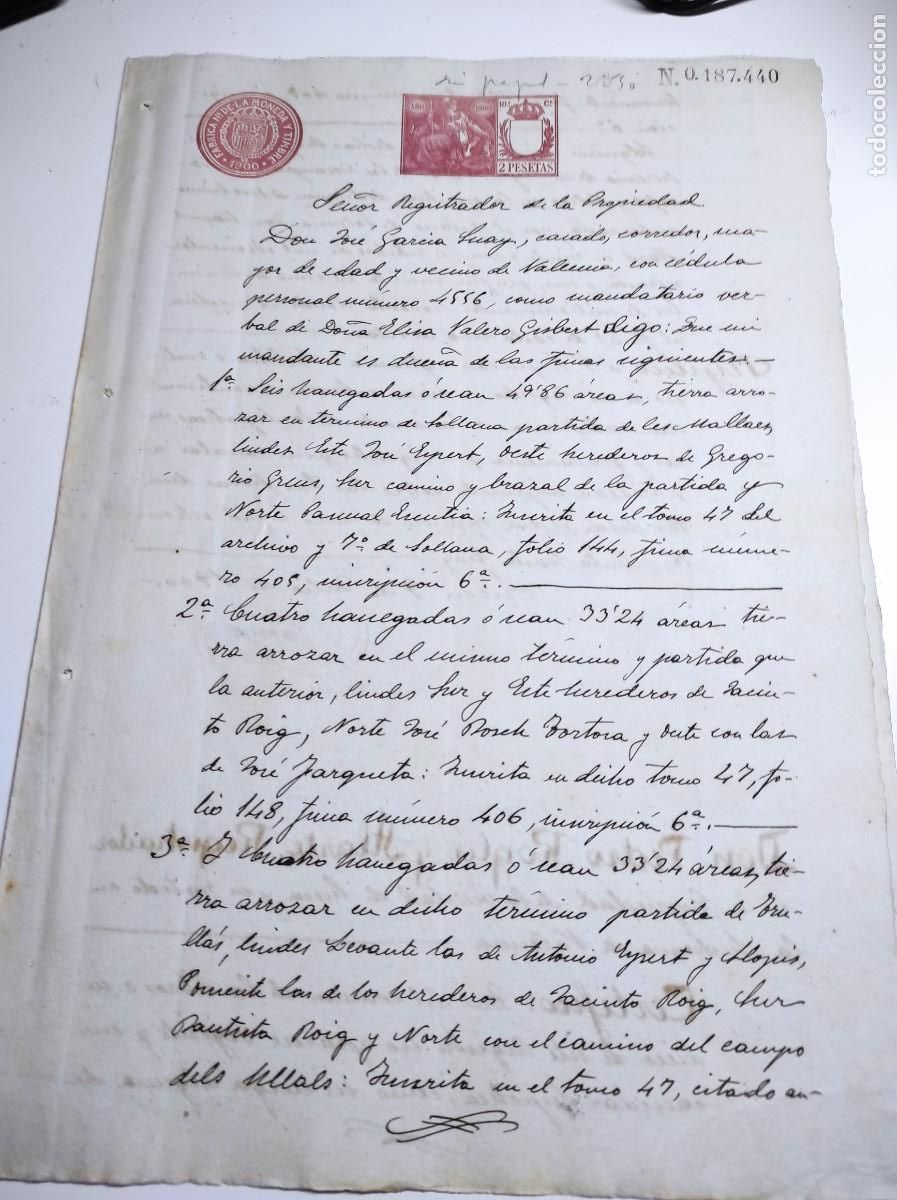 N. 0.187.440
FABRICA Nal DE LA MONEDA Y TIMBRE
1900
AÑO 1900
10ª Cª
2 PESETAS
Señor Registrador de la Propiedad
Don José Garcia Suay, casado, corredor, ma-
yor de edad y vecino de Valencia, con cédula
personal número 4556, como mandatario ver-
bal de Doña Elisa Valero Gisbert digo: Que mi
mandante es dueña de las fincas siguientes:-
1ª Seis hanegadas ó sean 49'86 áreas, tierra arro-
zar en termino de Sollana partida de les Mallaes,
lindes Este José Espert, oeste herederos de Grego-
rio Greus, Sur camino y brazal de la partida y
Norte Pascual Escutia: Inscrita en el tomo 47 del
archivo y 7º de Sollana, folio 144, finca núme-
ro 405, inscripción 6ª.
2ª Cuatro hanegadas ó sean 33'24 áreas tie-
rra arrozar en el mismo término y partida que
la anterior, lindes Sur y Este herederos de Jacin-
to Roig, Norte José Bosch Tortosa y oeste con las
de José Jarqueta: Inscrita en dicho tomo 47, fo-
lio 148, finca número 406, inscripción 6ª.
3ª Y Cuatro hanegadas ó sean 33'24 áreas, tie-
rra arrozar en dicho término partida de Tru-
llás, lindes Levante las de Antonio Espert y Llopis,
Poniente las de los herederos de Jacinto Roig, Sur
Bautista Roig y Norte con el camino del campo
dels Ullals: Inscrita en el tomo 47, citado an-
todocoleccion